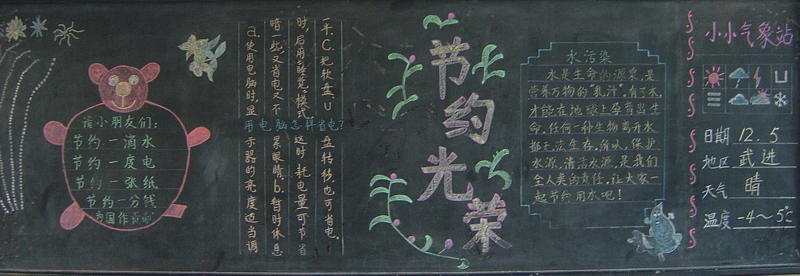 请小朋友们:
节约一滴水
节约一度电
节约一张纸
节约一分钱
用电脑怎样省电?
a.使用电脑时,显示器的亮度适当调
暗一些又省电又不累眼睛.b.暂时休息
时,启用“睡觉”模式,这时耗电量可节省
一半.C.把软盘U盘转移也可省电.
节约光荣
水污染
水是生命的源泉,是
营养万物的“乳汁”,有了水,
才能在地球上孕育出生
命,任何一种生物离开水
都无法生存,所以,保护
水源,清洁水源,是我们
全人类的责任,让大家一
起节约用水吧!
小小气象站
日期 12.5
地区 武进
天气 晴
温度 -4~5℃